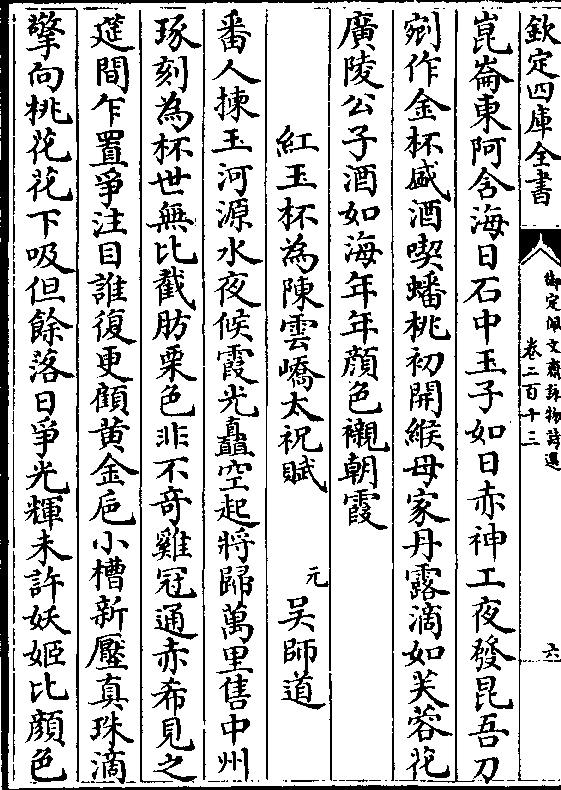 欽定四庫全書
御定佩文齋詠物詩選
卷二百十三
六
崑崙東阿含海日石中玉子如日赤神工夜發昆吾刀
剜作金杯盛酒喫蟠桃初開緱母家丹露滴如芙蓉花
廣陵公子酒如海年年顔色襯朝霞
紅玉杯為陳雲嶠太祝賦
元
吴師道
番人揀玉河源水夜候霞光矗空起將歸萬里售中州
琢刻為杯世無比截肪栗色非不奇雞冠通赤希見之
筵間乍置爭注目誰復更顧黄金巵小槽新壓真珠滴
擎向桃花花下吸但餘落日爭光輝未許妖姬比顔色